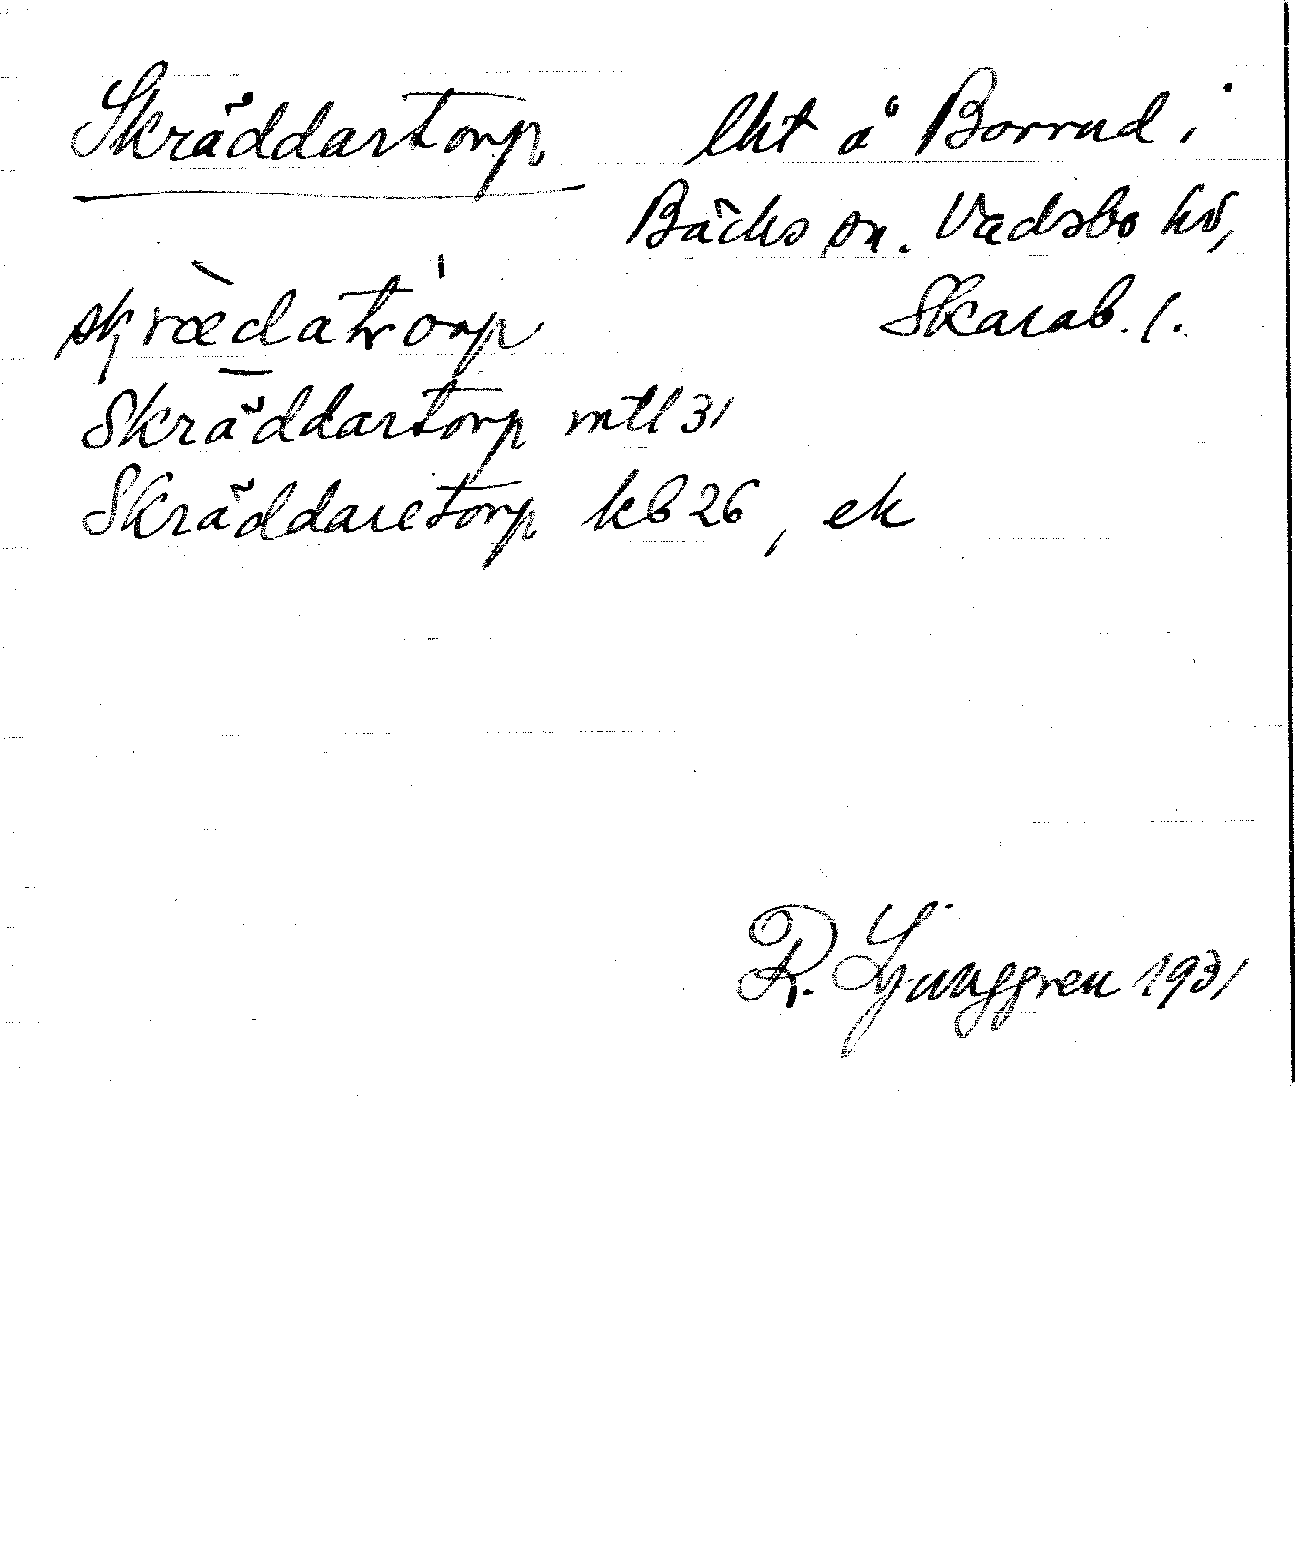 Skräddartorp lht å Borrud i
Bäcks sn. Vadsbo hd,
Skarab. l.
skrædatórp
Skräddartorp mtl 31
Skräddaretorp kb 26, ek
R. Ljunggren 1931